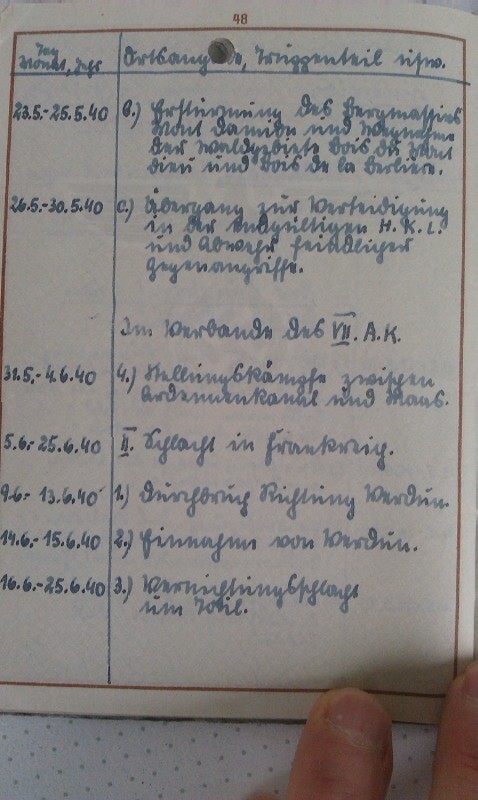 48
Tag
Monat, Jahr
Ortsangabe, Truppenteil usw.
23.5.-25.5.40 b.) Erstürmung des Bergmassivs
Mont Damion und Wegnahme
der Waldgebiete Bois du Mont
dieu und Bois de la Berlière.
26.5.-30.5.40 c.) Übergang zur Verteidigung
in der endgültigen H.K.L.
und Abwehr feindlicher
Gegenangriffe.
Im Verbande des VII. A.K.
31.5.-4.6.40 4.) Stellungskämpfe zwischen
Ardennenkanal und Maas.
5.6.-25.6.40 II. Schlacht in Frankreich.
9.6.- 13.6.40 1.) Durchbruch Richtung Verdun.
14.6.-15.6.40 2.) Einnahme von Verdun.
16.6.-25.6.40 3.) Vernichtungsschlacht
um Toul.